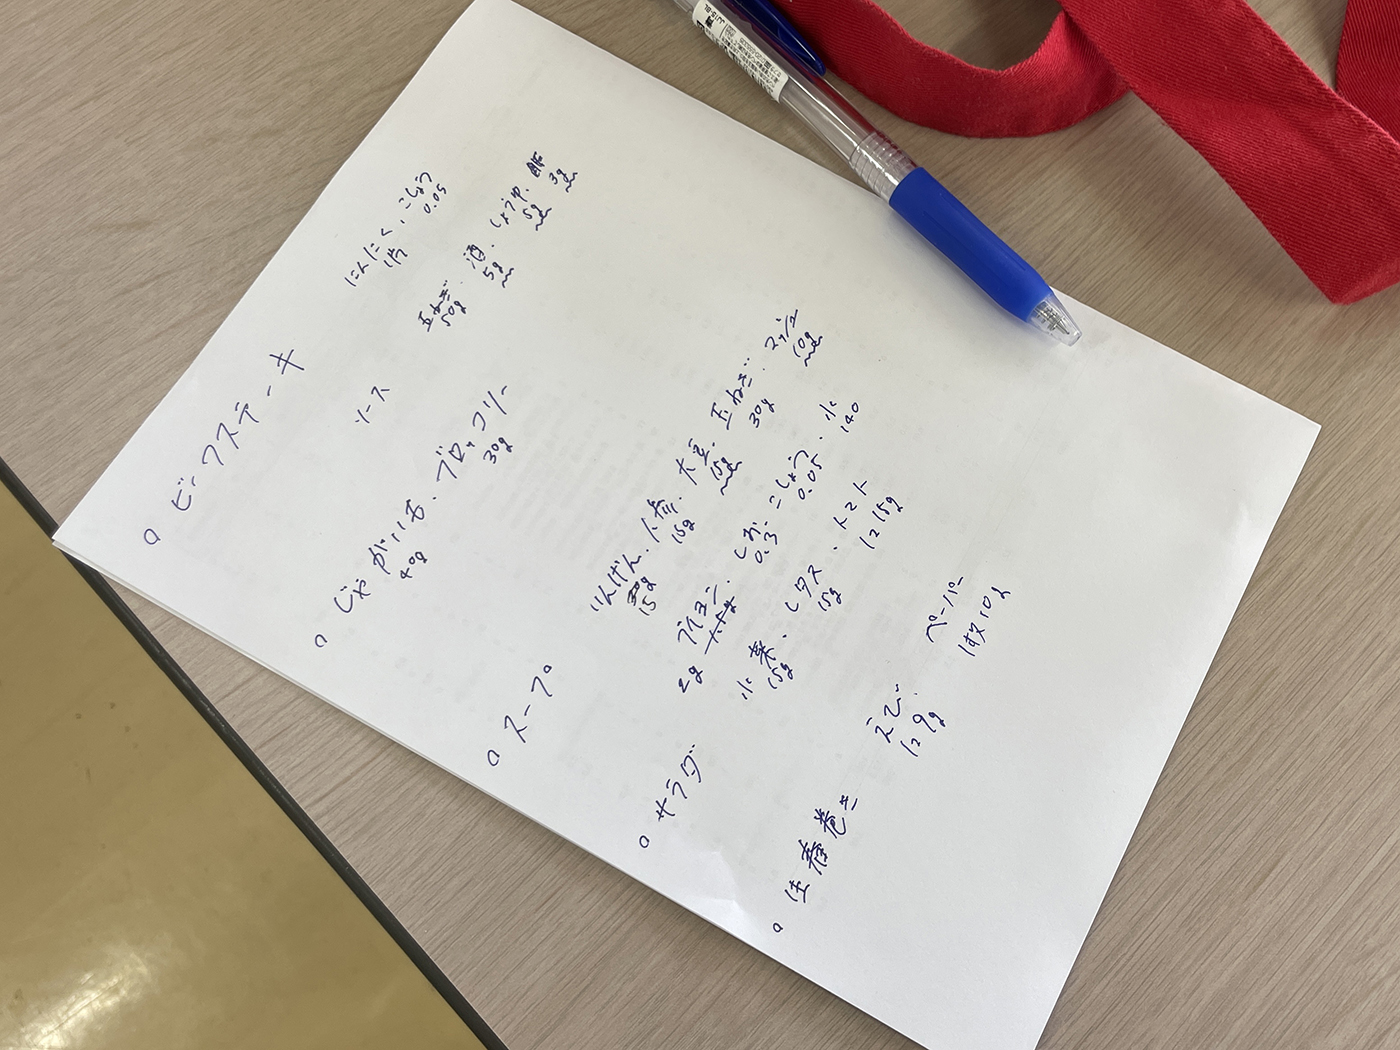 ○ ビーフステーキ
にんにく、こしょう
1片 0.05
ソース 玉ねぎ・酒・しょうゆ・酢
50g 5g 5g 3g
○ じゃがいも・ブロッコリー
40g 30g
○ スープ
いんげん・人参・大豆・玉ねぎ・
15g 15g 15g 30g 10g
2g しお・こしょう・水
0.3 0.05 140
○ サラダ
水菜・レタス・トマト
15g 15g 15g
○ 生春巻き
えび・ペーパー
9g